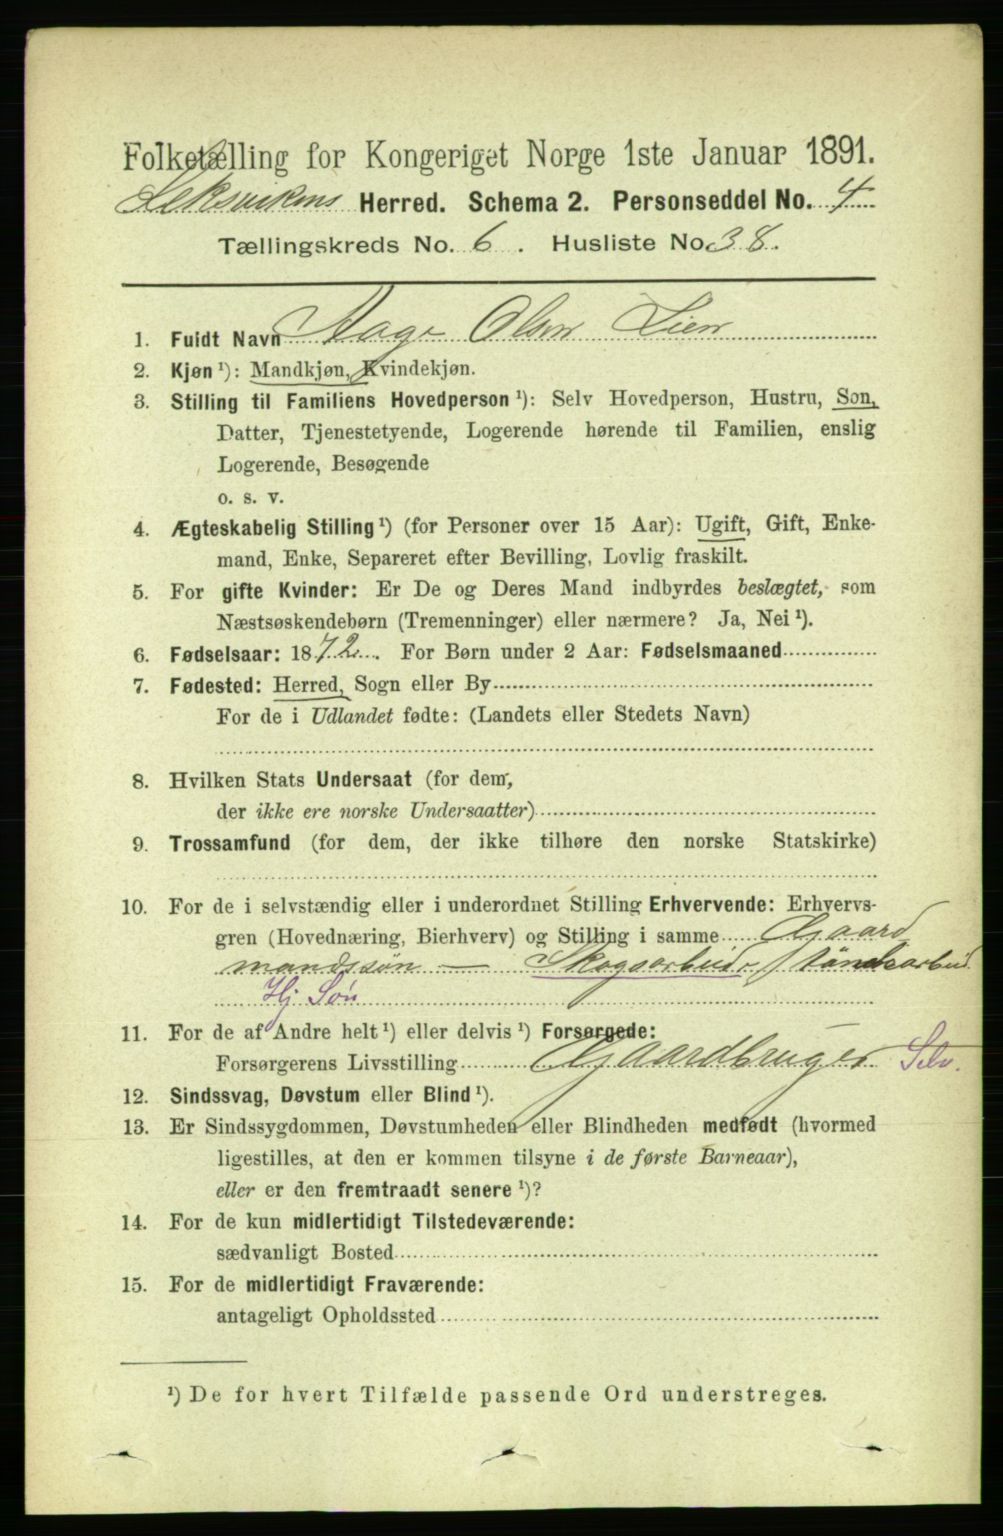 Folketælling for Kongeriget Norge 1ste Januar 1891.
Leksvikens Herred. Schema 2. Personseddel No. 4
Tællingskreds No. 6. Husliste No. 38.
1. Fuldt Navn Aage Olsen Lien
2. Kjøn ¹): Mandkjøn, Kvindekjøn.
3. Stilling til Familiens Hovedperson ¹): Selv Hovedperson, Hustru, Søn,
Datter, Tjenestetyende, Logerende hørende til Familien, enslig
Logerende, Besøgende
o. s. v.
4. Ægteskabelig Stilling ¹) (for Personer over 15 Aar): Ugift, Gift, Enke-
mand, Enke, Separeret efter Bevilling, Lovlig fraskilt.
5. For gifte Kvinder: Er De og Deres Mand indbyrdes beslægtet, som
Næstsøskendebørn (Tremenninger) eller nærmere? Ja, Nei ¹).
6. Fødselsaar: 1872. For Børn under 2 Aar: Fødselsmaaned
7. Fødested: Herred, Sogn eller By
For de i Udlandet fødte: (Landets eller Stedets Navn)
8. Hvilken Stats Undersaat (for dem,
der ikke ere norske Undersaatter)
9. Trossamfund (for dem, der ikke tilhøre den norske Statskirke)
10. For de i selvstændig eller i underordnet Stilling Erhvervende: Erhvervs-
gren (Hovednæring, Bierhverv) og Stilling i samme Gaard
mandssøn — Skogsarbeide
Hj Søn
11. For de af Andre helt ¹) eller delvis ¹) Forsørgede:
Forsørgerens Livsstilling Gaardbruger Selv.
12. Sindssvag, Døvstum eller Blind ¹).
13. Er Sindssygdommen, Døvstumheden eller Blindheden medfødt (hvormed
ligestilles, at den er kommen tilsyne i de første Barneaar),
eller er den fremtraadt senere ¹)?
14. For de kun midlertidigt Tilstedeværende:
sædvanligt Bosted
15. For de midlertidigt Fraværende:
antageligt Opholdssted
¹) De for hvert Tilfælde passende Ord understreges.